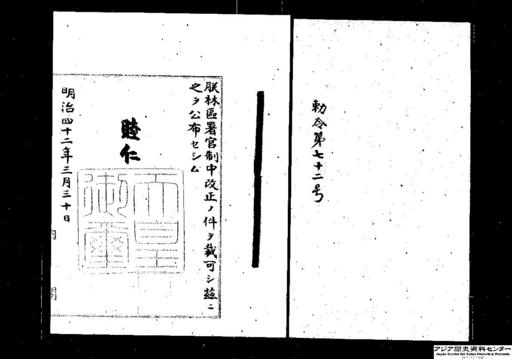 勅令第七十二号
朕林區署官制中改正ノ件ヲ裁可シ茲ニ
之ヲ公布セシム
睦仁
天皇御璽
明治四十二年三月三十日
内
閣
アジア歴史資料センター
Japan Center for Asian Historical Records